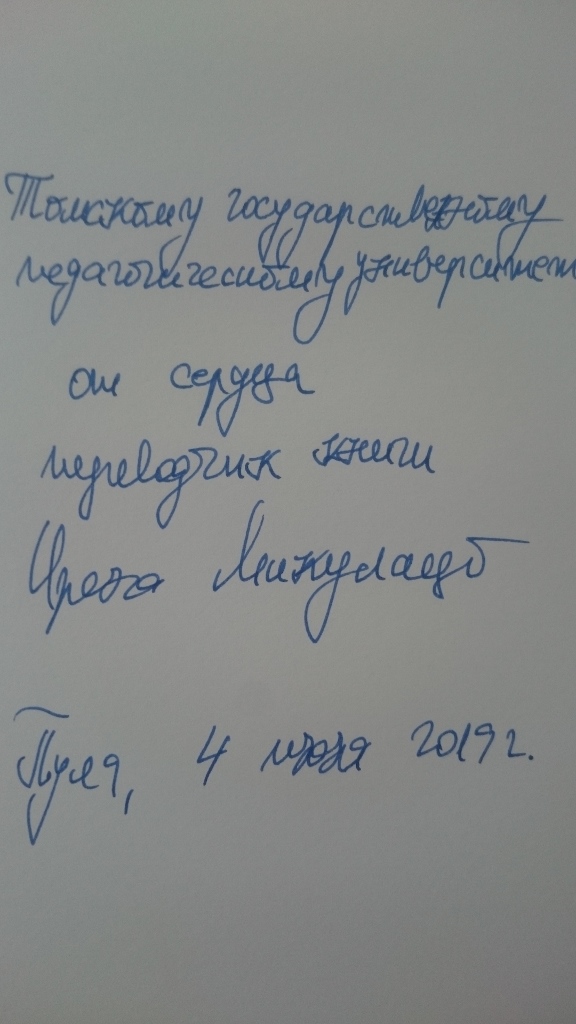 Томскому государственному
педагогическому университет
от сердца
переводчик книги
Ирена Микулацо
Пуля, 4 июля 2019 г.